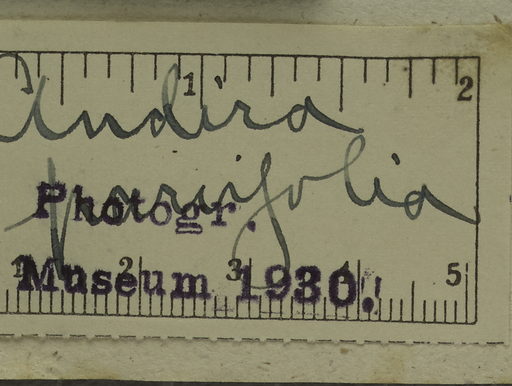 1 2
Andira
parvifolia
Photogr.
Museum 1930.
1 2 3 4 5